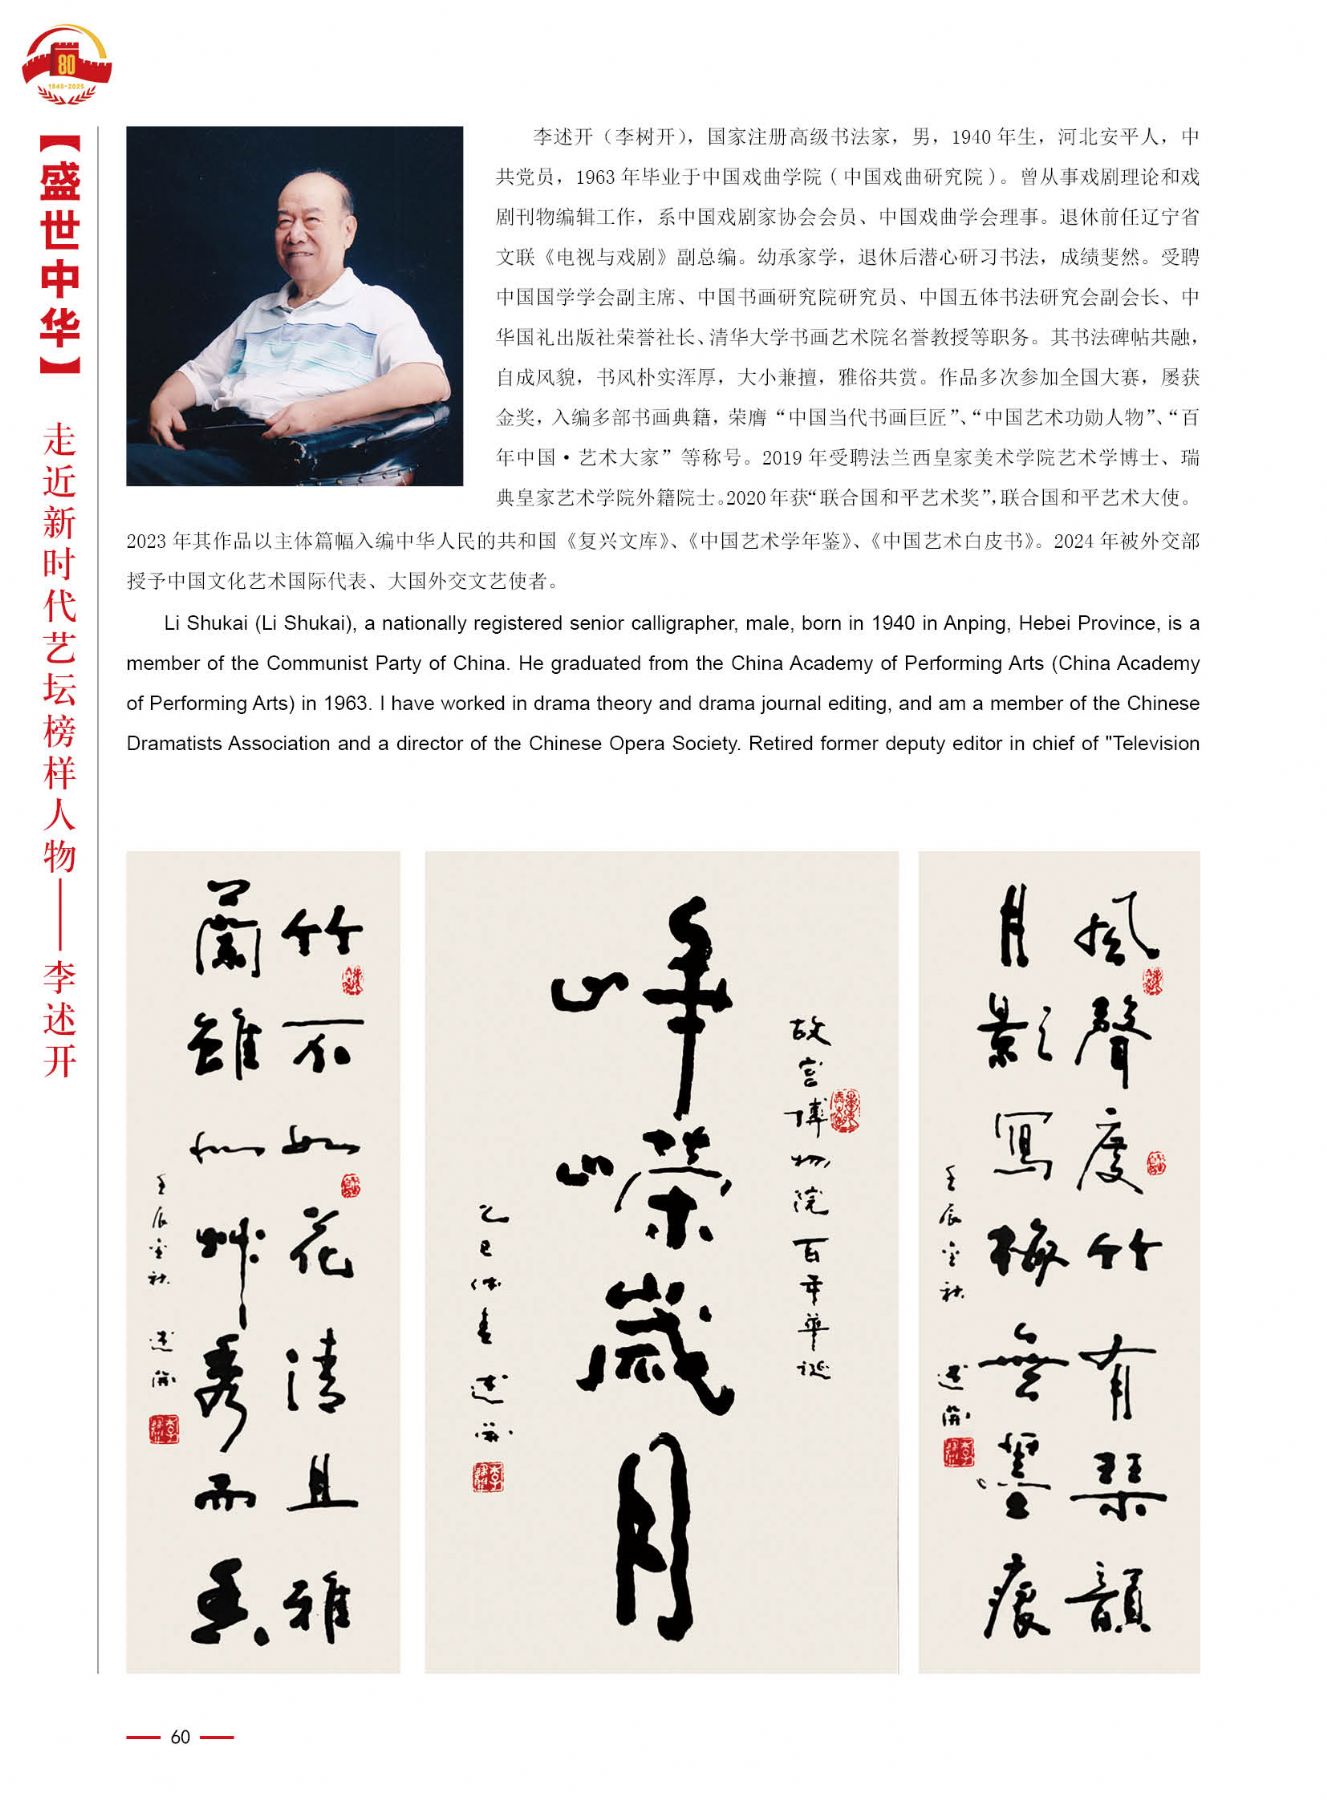 80
1945-2025
【盛世中华】
走近新时代艺坛榜样人物——李述开
李述开（李树开），国家注册高级书法家，男，1940 年生，河北安平人，中
共党员，1963 年毕业于中国戏曲学院（中国戏曲研究院）。曾从事戏剧理论和戏
剧刊物编辑工作，系中国戏剧家协会会员、中国戏曲学会理事。退休前任辽宁省
文联《电视与戏剧》副总编。幼承家学，退休后潜心研习书法，成绩斐然。受聘
中国国学学会副主席、中国书画研究院研究员、中国五体书法研究会副会长、中
华国礼出版社荣誉社长、清华大学书画艺术院名誉教授等职务。其书法碑帖共融，
自成风貌，书风朴实浑厚，大小兼擅，雅俗共赏。作品多次参加全国大赛，屡获
金奖，入编多部书画典籍，荣膺“中国当代书画巨匠”、“中国艺术功勋人物”、“百
年中国·艺术大家”等称号。2019 年受聘法兰西皇家美术学院艺术学博士、瑞
典皇家艺术学院外籍院士。2020 年获“联合国和平艺术奖”，联合国和平艺术大使。
2023 年其作品以主体篇幅入编中华人民的共和国《复兴文库》、《中国艺术学年鉴》、《中国艺术白皮书》。2024 年被外交部
授予中国文化艺术国际代表、大国外交文艺使者。
Li Shukai (Li Shukai), a nationally registered senior calligrapher, male, born in 1940 in Anping, Hebei Province, is a
member of the Communist Party of China. He graduated from the China Academy of Performing Arts (China Academy
of Performing Arts) in 1963. I have worked in drama theory and drama journal editing, and am a member of the Chinese
Dramatists Association and a director of the Chinese Opera Society. Retired former deputy editor in chief of "Television
竹不如花清且雅
蘭雖似艸秀而香
壬辰金秋 述開
故宫博物院百年華誕
峥嶸歲月
乙巳仲春 述開
風聲度竹有琴韻
月影寫梅無墨痕
壬辰金秋 述開
60